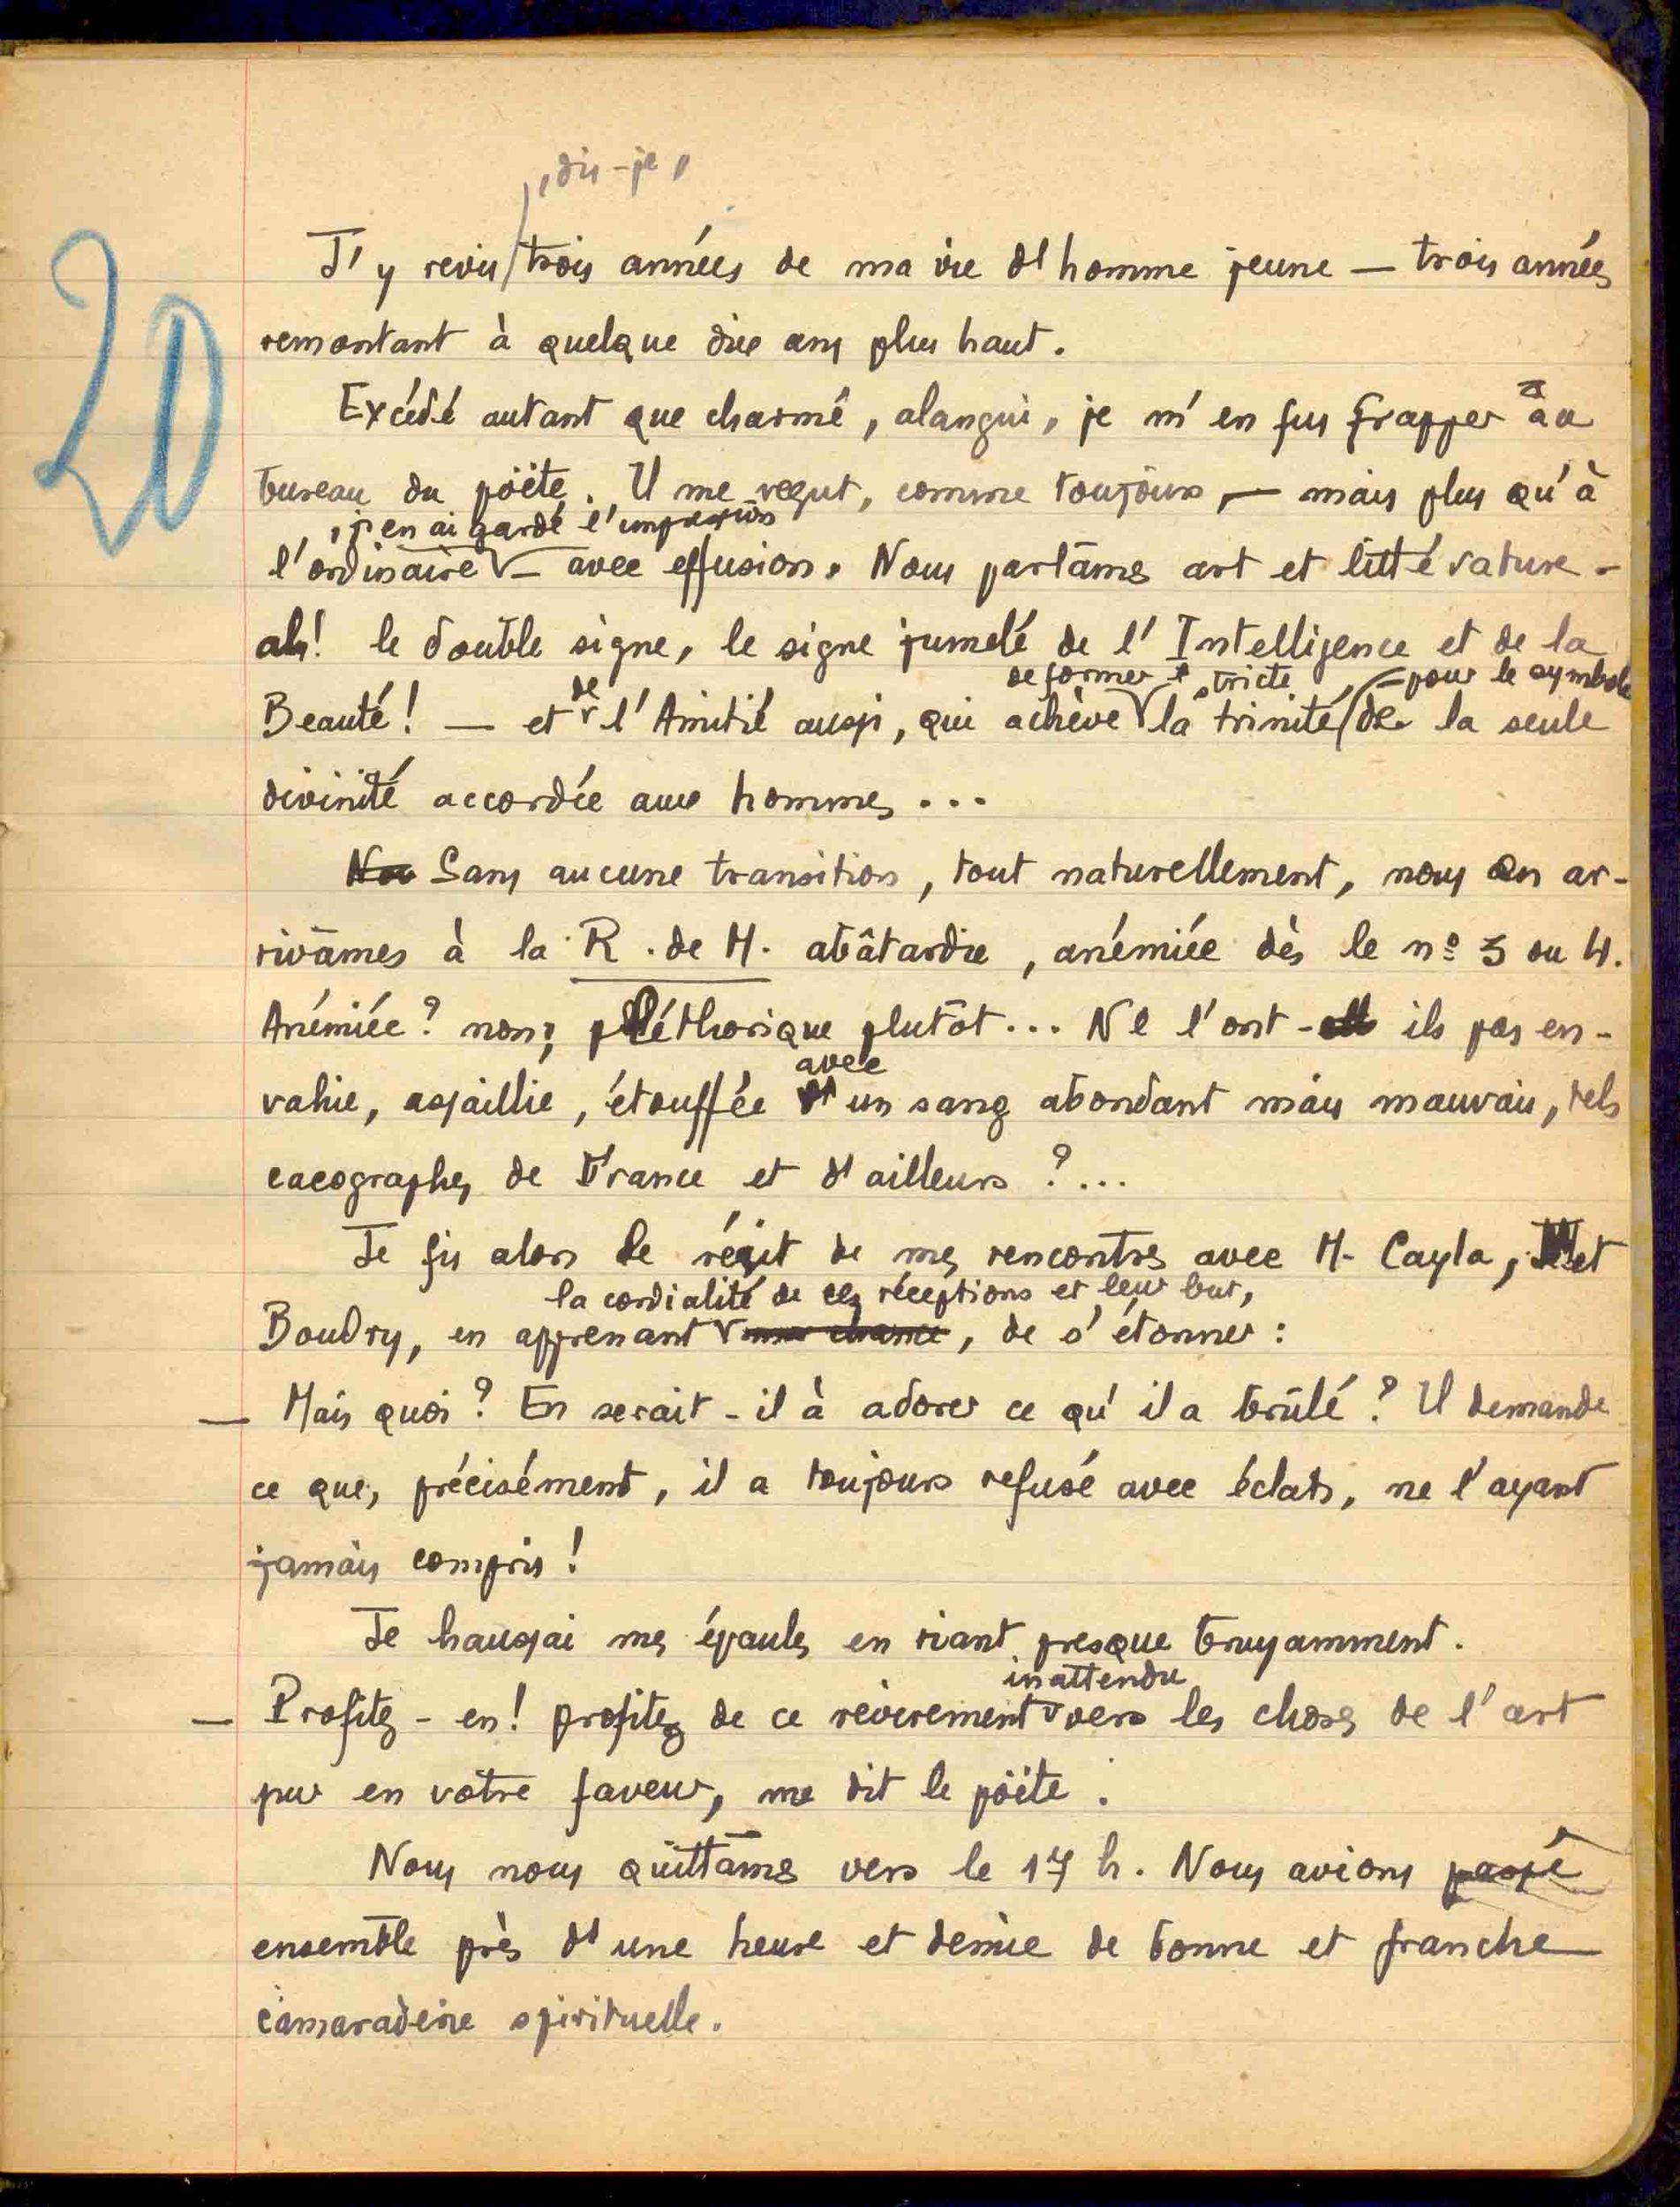 , dis-je,
J'y revis trois années de ma vie d'homme jeune — trois années
remontant à quelque dix ans plus haut.
Excédé autant que charmé, alangui, je m'en fus frapper au
bureau du poëte. Il me reçut, comme toujours, — mais plus qu'à
, j'en ai gardé l'impression
l'ordinaire — avec effusion. Nous parlâmes art et littérature –
ah! le double signe, le signe jumelé de l'Intelligence et de la
de former stricte – pour le symbole
de
Beauté! — et l'Amitié aussi, qui achève la trinité de la seule
divinité accordée aux hommes...
No Sans aucune transition, tout naturellement, nous en ar-
rivâmes à la R. de M. abâtardie, anémiée dès le nº 3 ou 4.
Anémiée? non; pléthorique plutôt... Ne l'ont-ils pas en-
avec
vahie, assaillie, étouffée un sang abondant mais mauvais, tels
cacographes de France et d'ailleurs?...
Je fis alors le récit de mes rencontres avec M. Cayla, et
la cordialité de ces réceptions et leur but,
Boudry, en apprenant ma chance, de s'étonner:
— Mais quoi? En serait-il à adorer ce qu'il a brûlé? Il demande
ce que, précisément, il a toujours refusé avec éclats, ne l'ayant
jamais compris!
Je haussai mes épaules en riant presque bruyamment.
inattendu
— Profitez-en! profitez de ce revirement vers les choses de l'art
pur en votre faveur, me dit le poëte.
Nous nous quittâmes vers le 17 h. Nous avions passé
ensemble près d'une heure et demie de bonne et franche
camaraderie spirituelle.
20